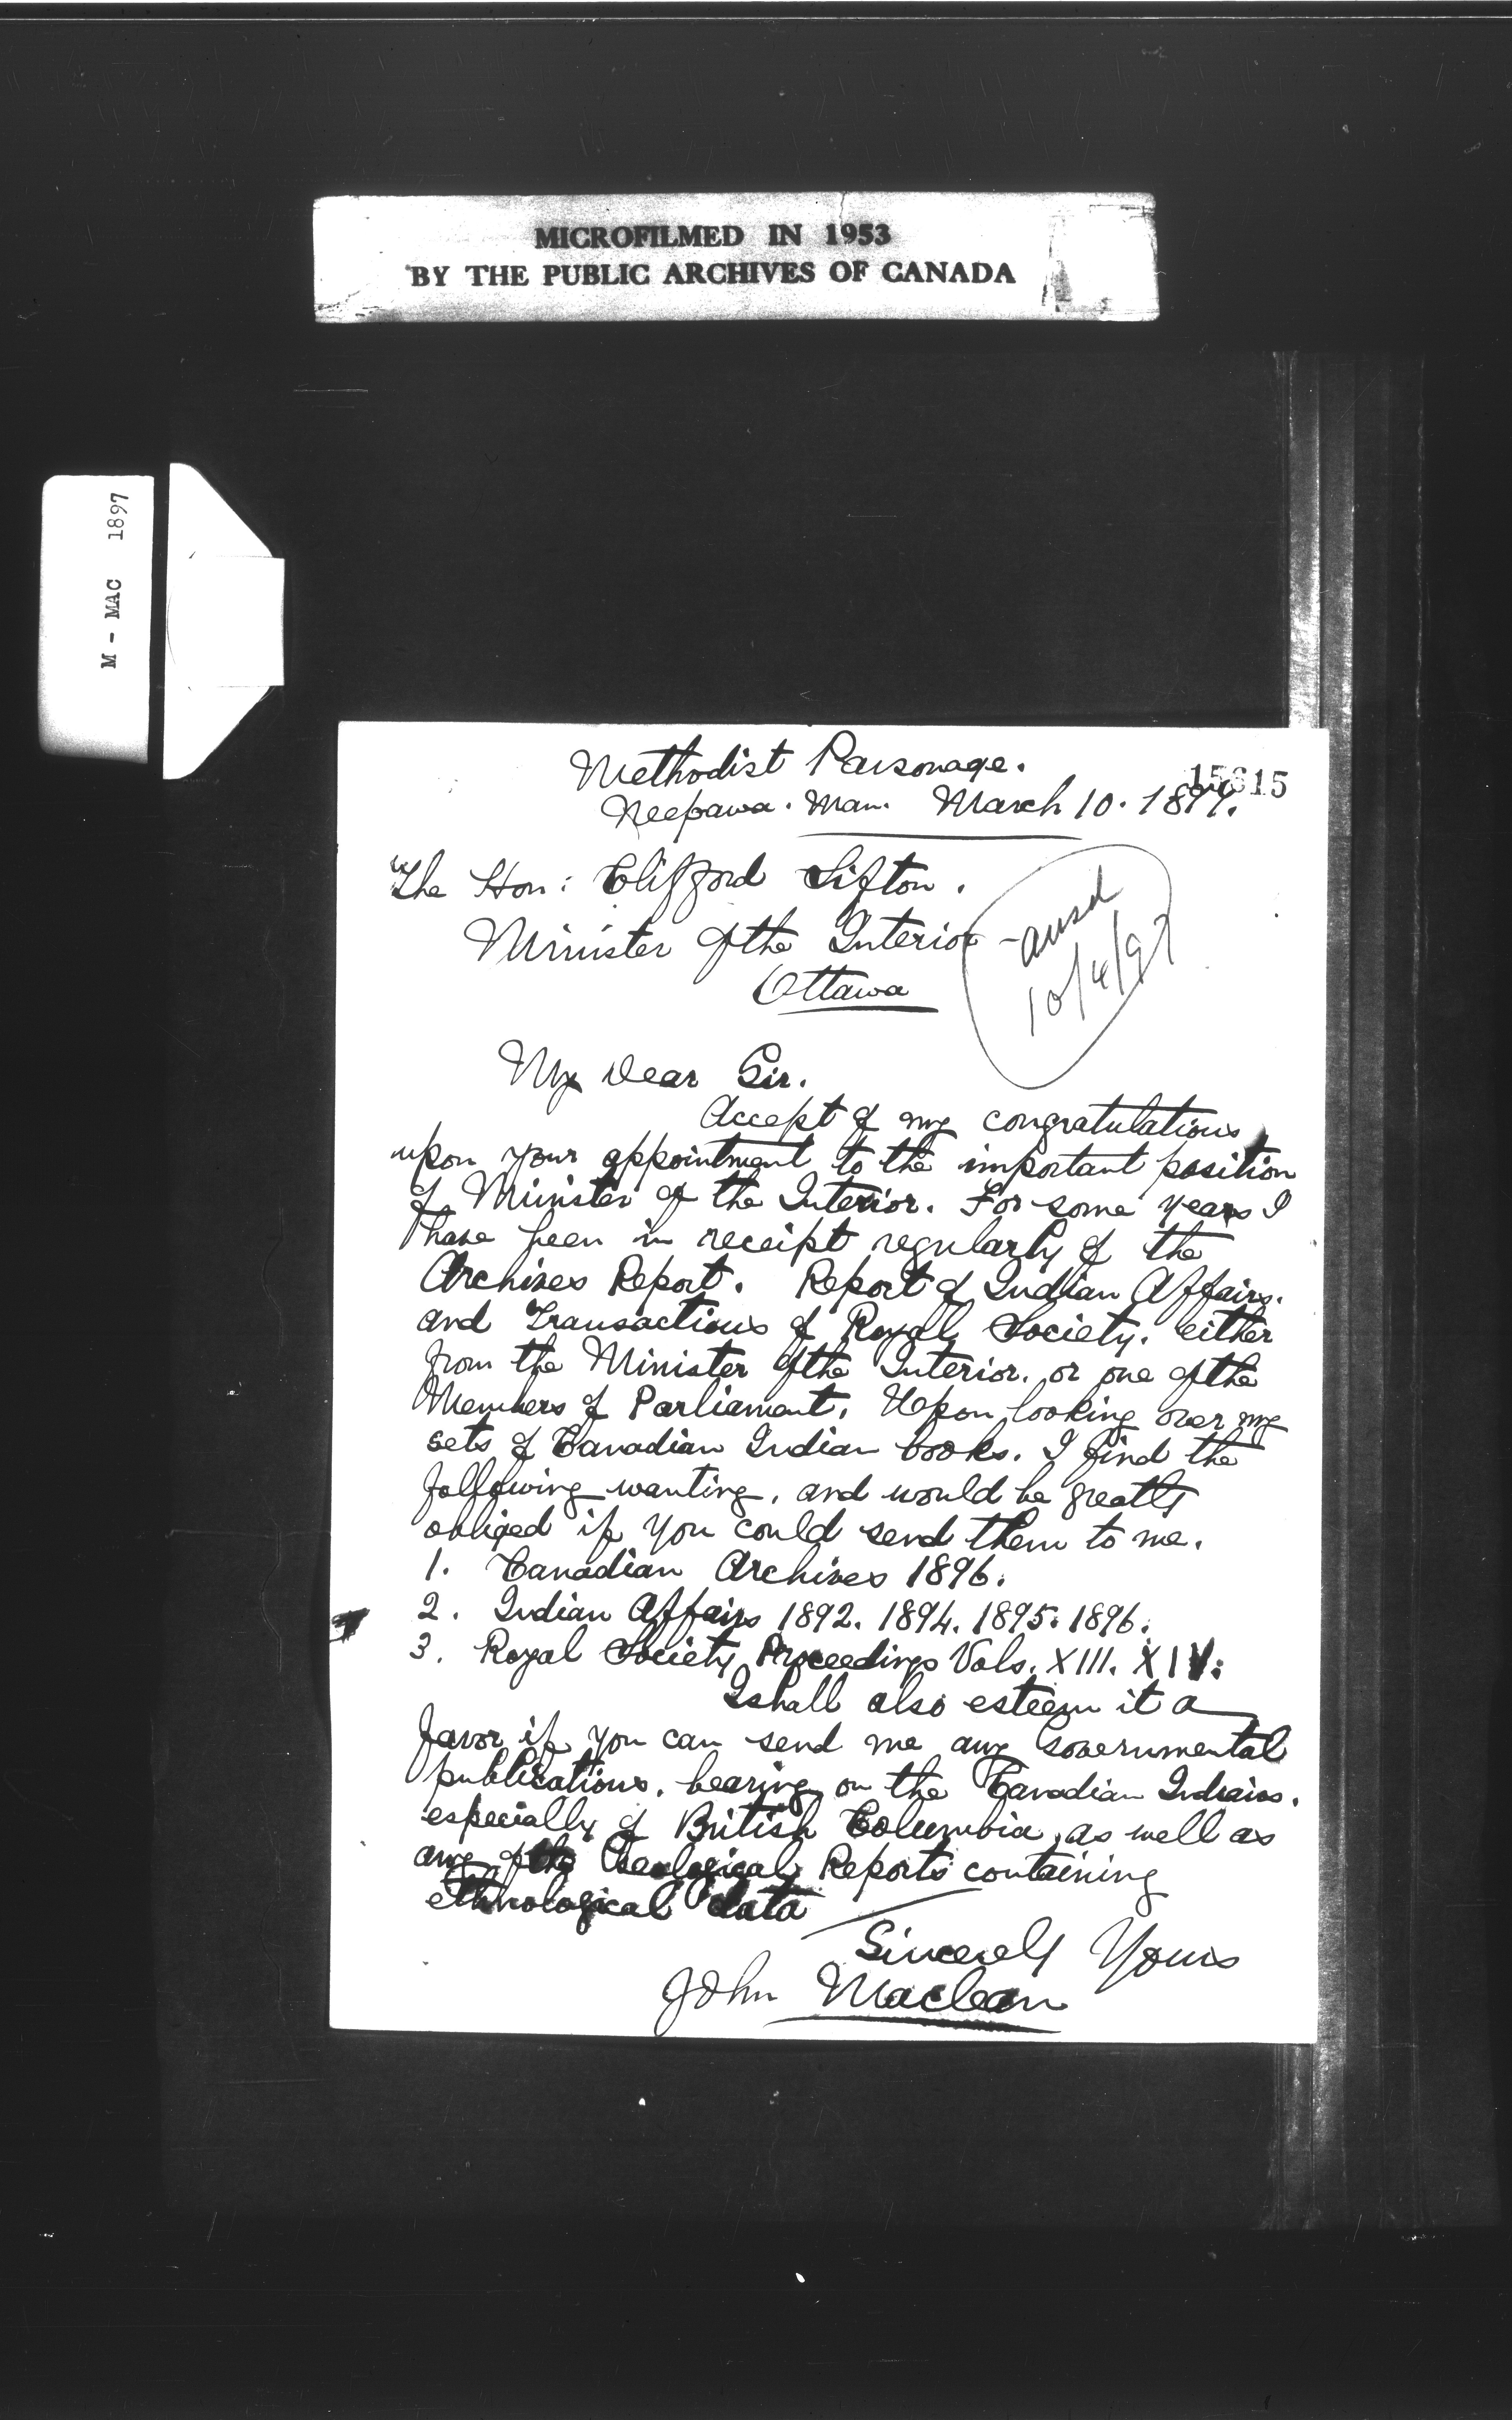 MICROFILMED IN 1953
BY THE PUBLIC ARCHIVES OF CANADA
M - MAC 1897
Methodist Parsonage.
Neepawa. Man. March 10. 1897.
The Hon: Clifford Sifton.
Minister of the Interior
Ottawa
ansd
10/4/97
My Dear Sir.
Accept of my congratulations
upon your appointment to the important position
of Minister of the Interior. For some years I
have been in receipt regularly of the
Archives Report. Report of Indian Affairs.
and Transactions of Royal Society. either
from the Minister of the Interior. or one of the
Members of Parliament. Upon looking over my
sets of Canadian Indian books. I find the
following wanting, and would be greatly
obliged if you could send them to me.
1. Canadian Archives 1896.
2. Indian Affairs 1892. 1894. 1895. 1896.
3. Royal Society Proceedings Vols. XIII. XIV:
I shall also esteem it a
favor if you can send me any Governmental
publications, bearing on the Canadian Indians.
especially of British Columbia, as well as
any of the Geological Reports containing
ethnological data
Sincerely Yours
John Maclean